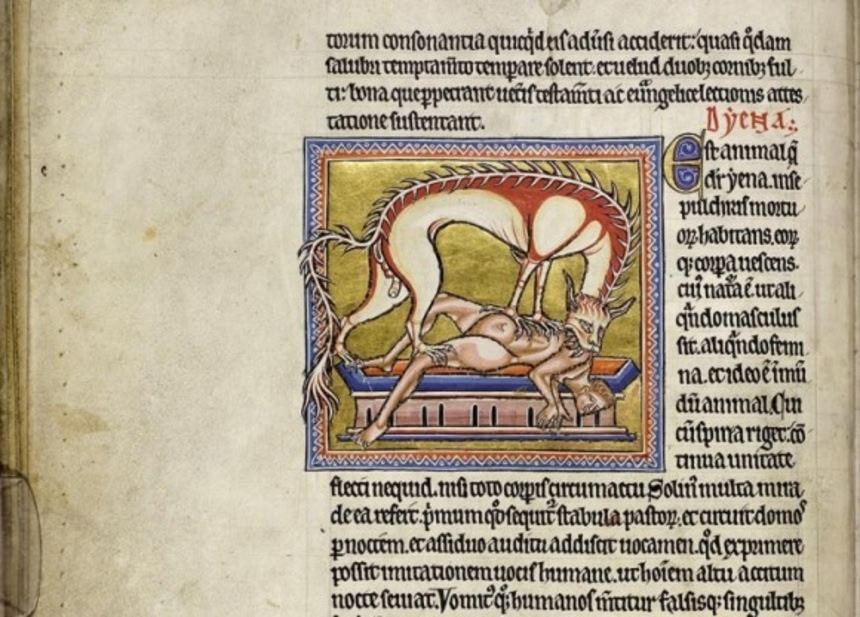 torum consonantia quicq̄d eis adūsi acciderit: quasi q̄dam
salubri temptam̄to temperare solent. et uelud duob; cornib; ful
ti: bona que ꝑpetrant uet̄is testam̄ti ac eūngelice lectionis attes
tatione sustentant.
D yena.
Est animal q̄
dr̄ yena. in se
pulchris mortu
oꝝ habitans. eoꝝ
q; corpa uescens.
cuiꝰ nat̄a ē. ut ali
q̄ndo masculus
sit. aliq̄ndo femi
na. et ideo ē īmū
dū animal. Cui
cū spina riget: cō
tinua unitate
flecti nequid. nisi toto corpis circumactu. Solinꝰ multa mira
de ea refert. p̄mum qd̄ sequit̄ stabula pastoꝝ. et circuit domos
ꝑ noctem. et assiduo auditu addiscit uocamen. qd̄ exprimere
possit imitationem uocis humane. ut hoīem astu accitum
nocte seuiat. Vomitꝰ q; humanos m̄titur falsisq; singultib;